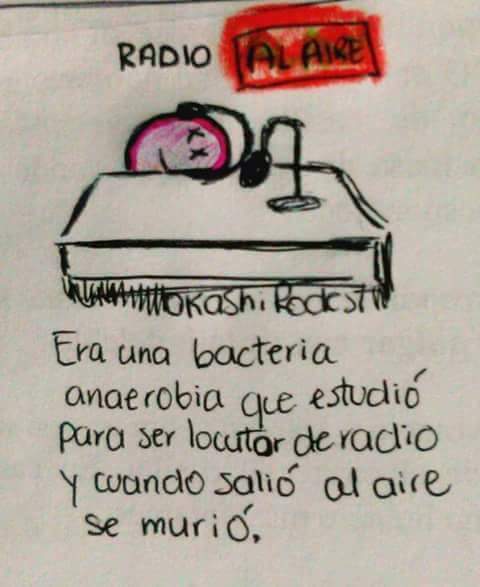 RADIO AL AIRE
OKASHi Rodest
Era una bacteria
anaerobia que estudió
para ser locutor de radio
y cuando salió al aire
se murió.